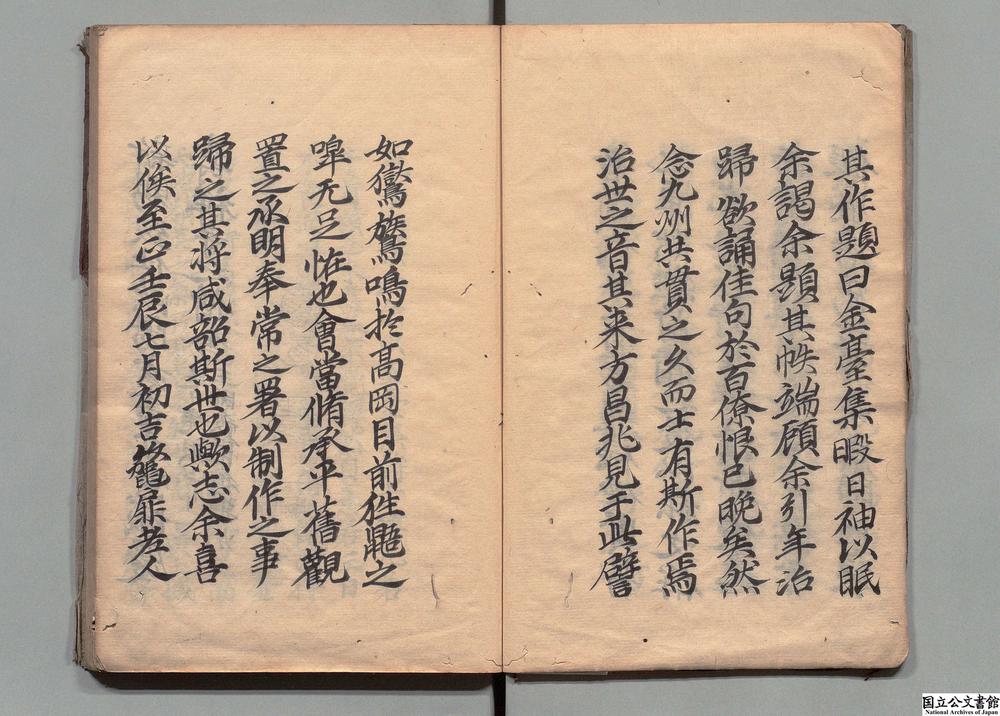 其作題曰金臺集暇日袖以眠
余謁余題其帙端顧余引年治
歸欲誦佳句於百僚恨已晚矣然
念九州共貫之久而士有斯作焉
治世之音其来方昌兆見于此譬
如鸑鷟鳴於高岡目前狌鼯之
嘷无足恠也會當脩承平舊觀
置之承明奉常之署以制作之事
歸之其将咸韶斯世也歟志余喜
以俟至正壬辰七月初吉篭扉老人
国立公文書館
National Archives of Japan